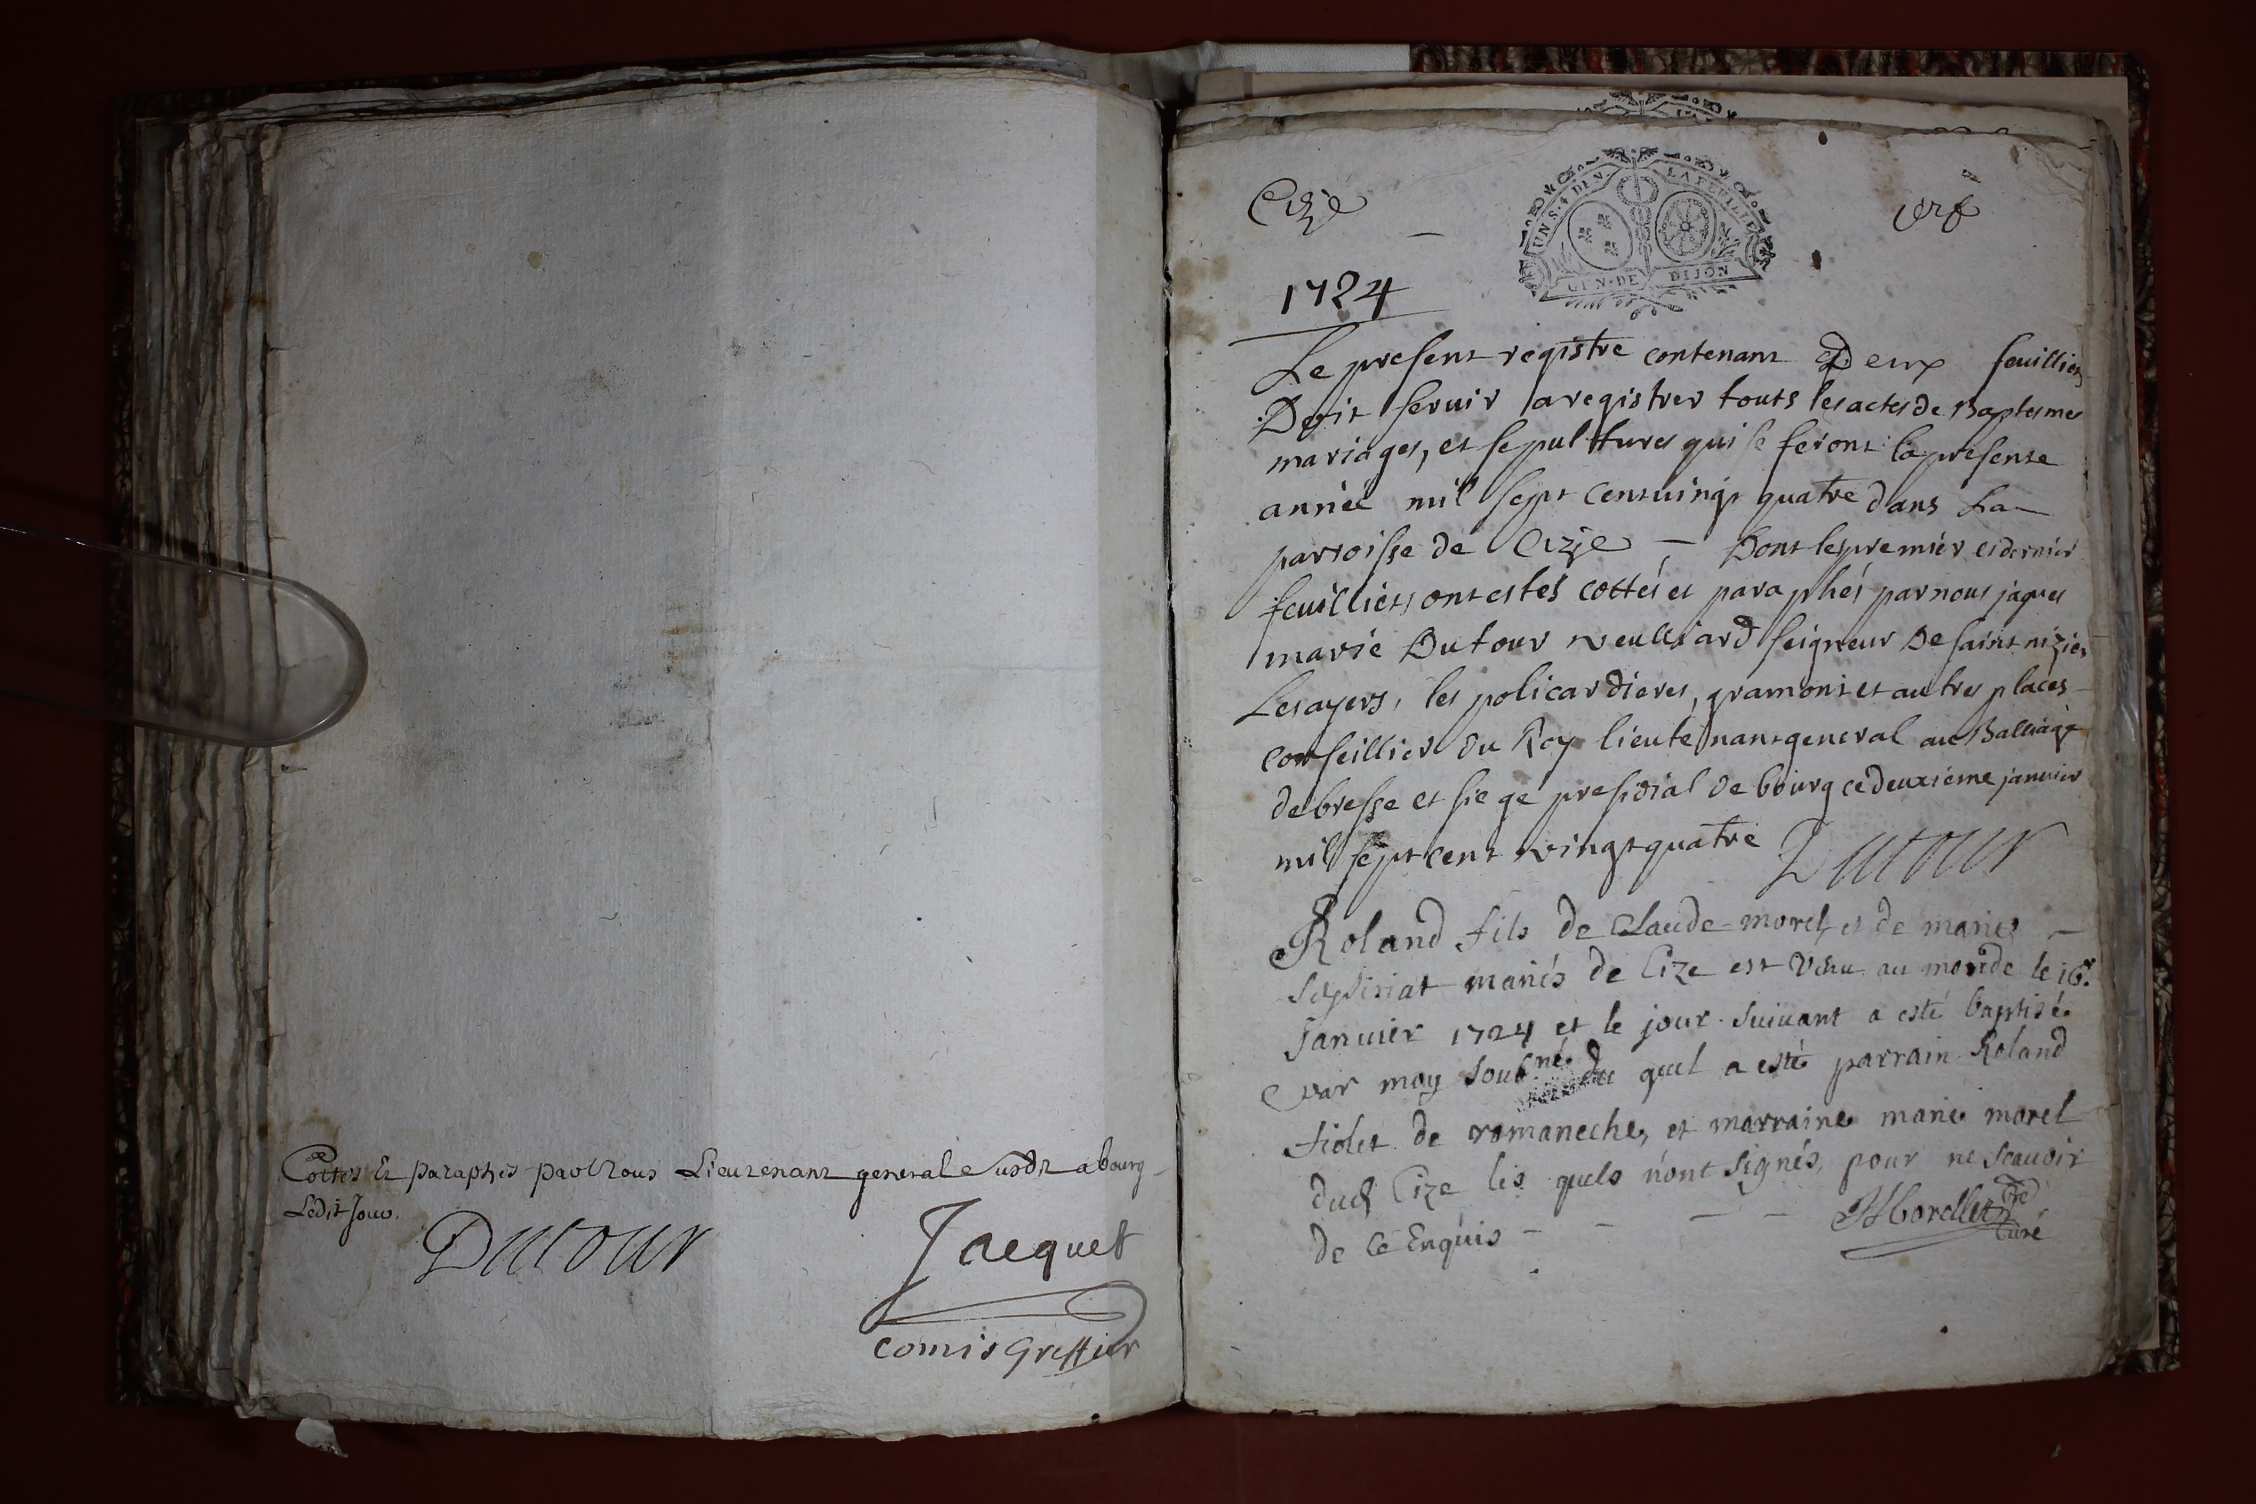 Cottes Et paraphes par Nous Lieutenant general susdit a bourg
Ledit Jour.
Dutour
Jacquet
comis Greffier
Cize
UN S. 4 DEN. LA FEUILLE
GEN. DE DIJON
1724
Le present registre contenant deux feuilliets
Doit servir a registrer touts les actes de Baptesmes
mariages, et sepultures qui se feront la presente
année mil sept cent vingt quatre dans La
parroisse de Cize Dont les premier et dernier
feuilliets ont estés cottés et paraphés par nous jaques
marie Dutour Veulliard seigneur De saint nizier
Lesayers, les policardieres, gramont et autres places
conseillier du Roy lieutenant general au Balliage
de bresse et siege presidial de bourg ce deuxiéme janvier
mil sept cent vingt quatre Dutour
Roland fils de Claude morel et de marie
mariés de Cize est Venu au monde le 16e
Janvier 1724 et le jour suivant a esté baptisé
par moy soubné du quel a esté parrain Roland
fiolet de romaneche, et marraine marie morel
dud Cize les quels n'ont signés pour ne scavoir
de ce Enquis Morellet pre
Curé